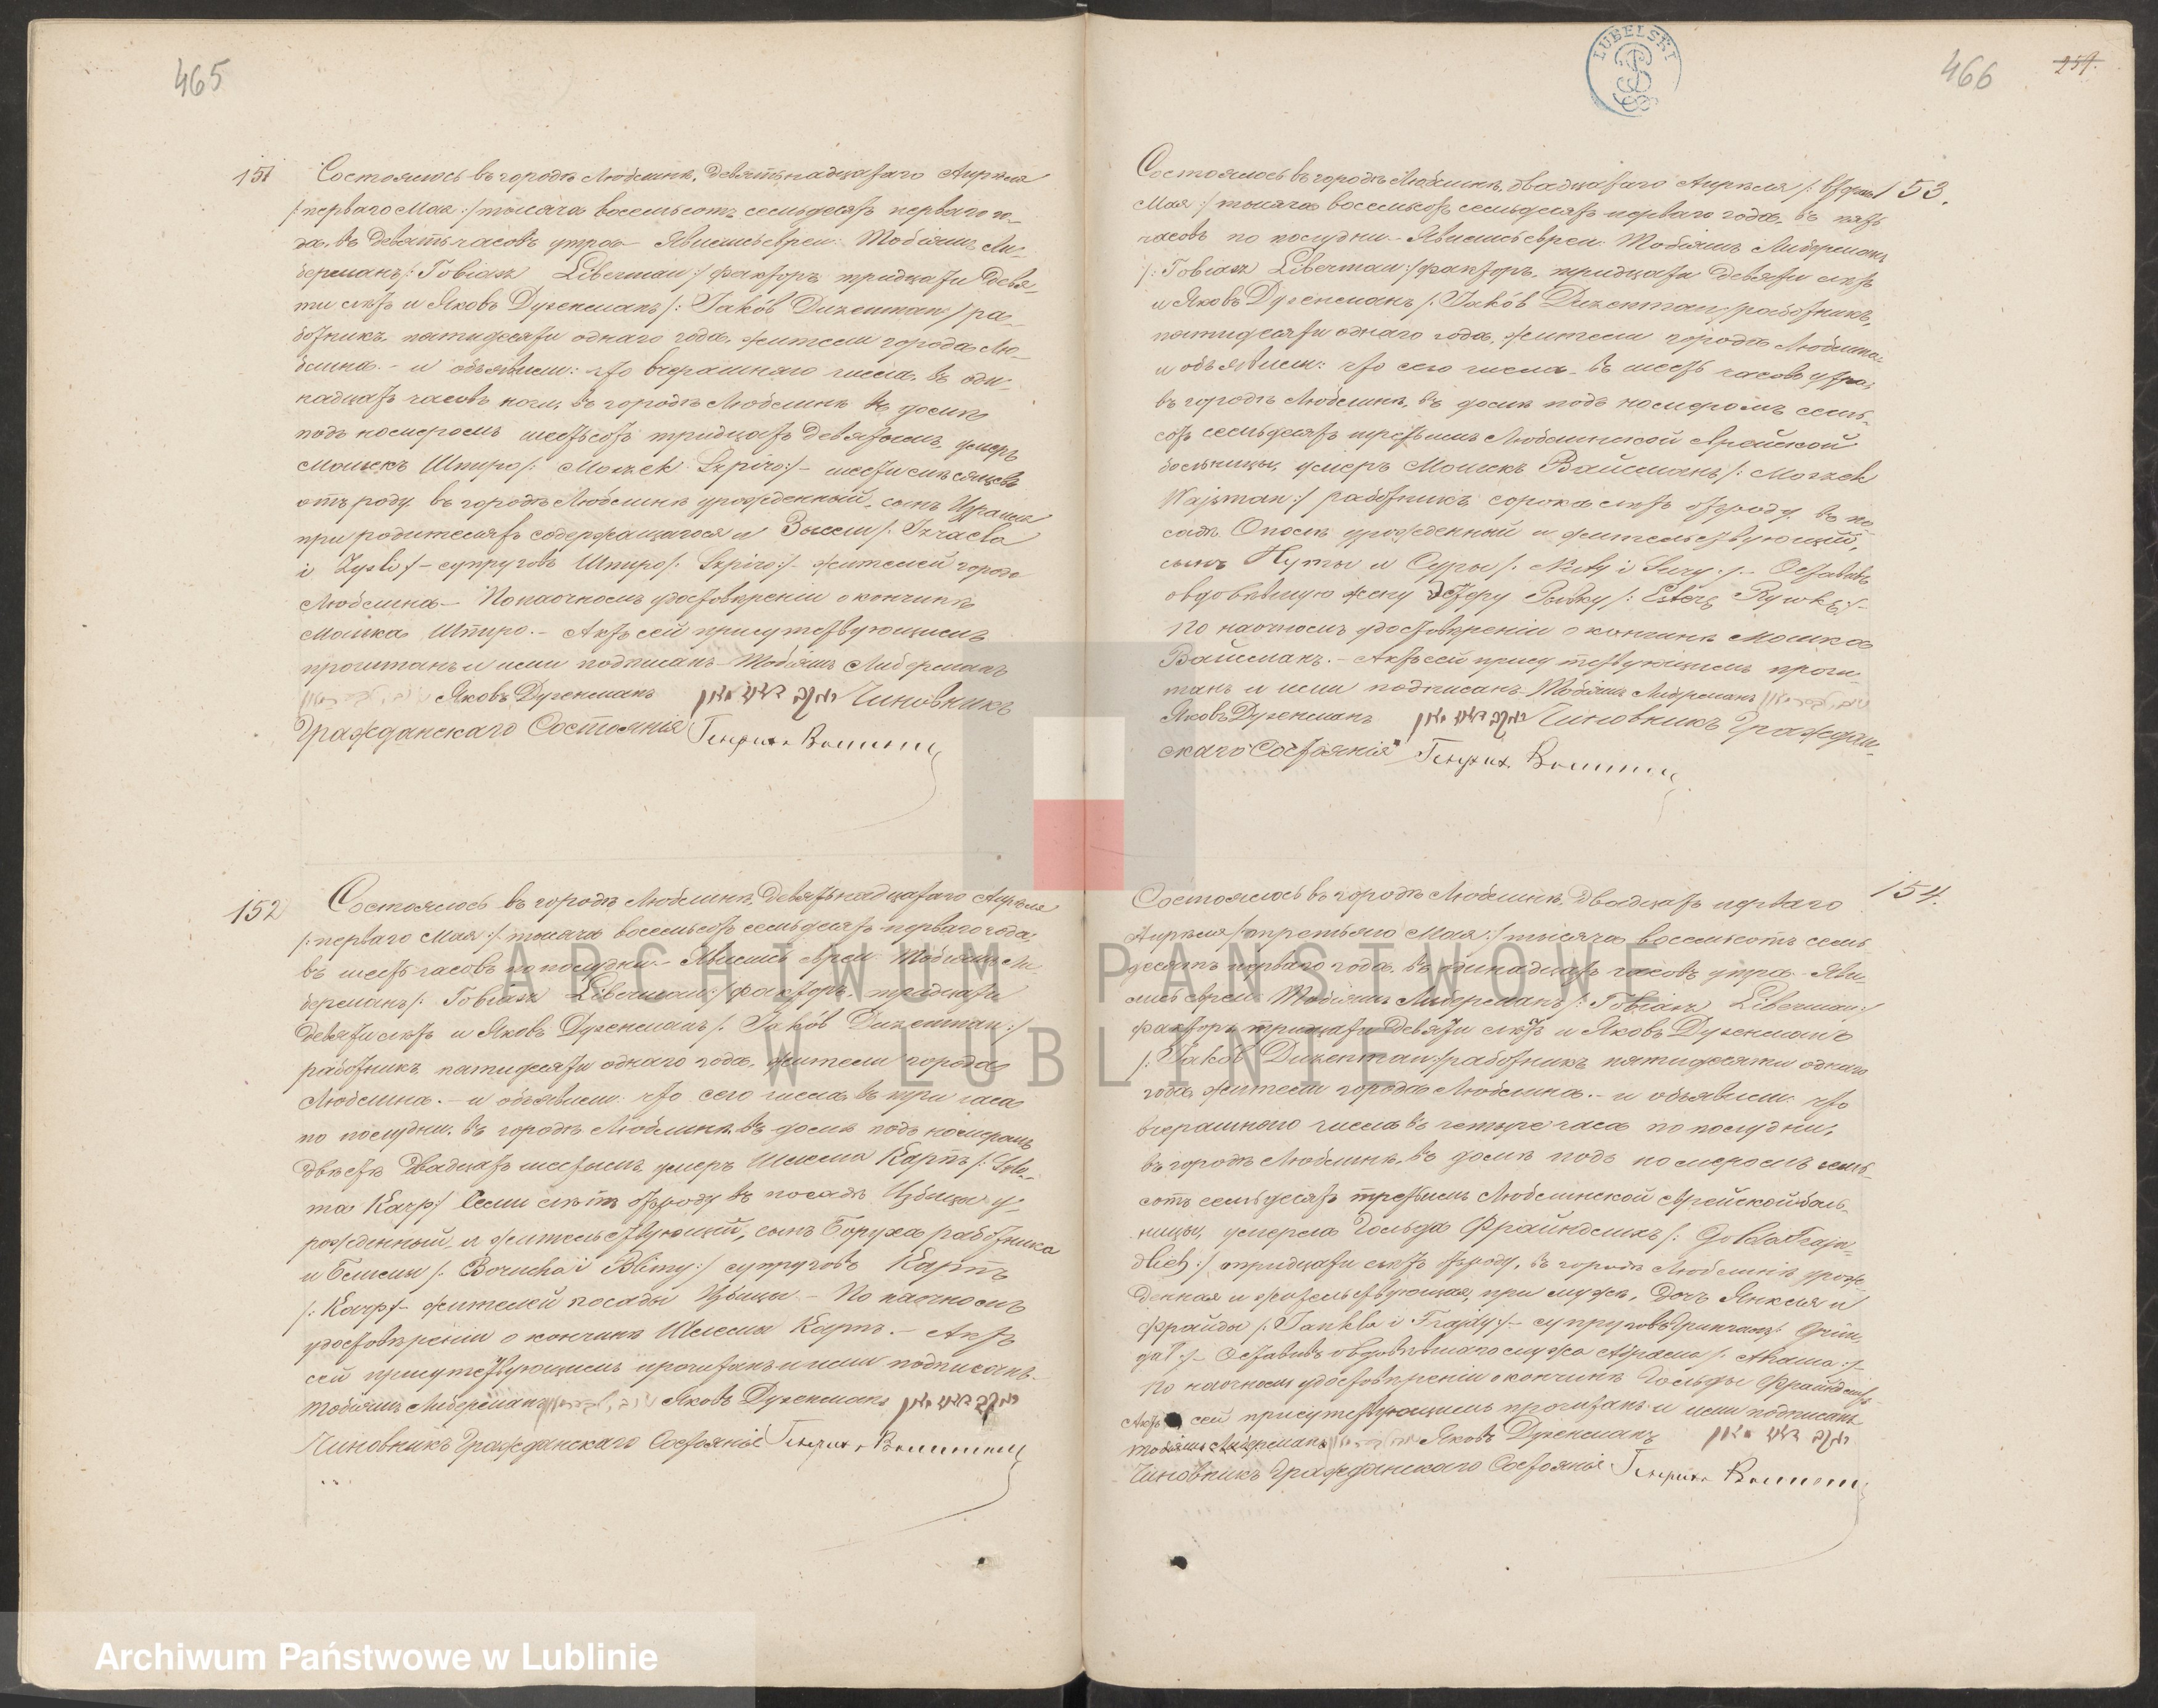 465
151 Состоялось въ городѣ Люблинѣ, девятьнадцатаго Апрѣля
/: перваго Мая :/ тысяча восемьсотъ семьдесятъ перваго го-
да, въ девять часовъ утра - Явились евреи: Тобіяшъ Ли-
берманъ /: Tobiasz Liberman :/ факторъ тридцати девя-
ти лѣтъ и Яковъ Духенманъ /: Jakób Duxenman :/ ра-
ботникъ, пятидесяти одного года, жители города Лю-
блина. - и объявили: что вчерашняго числа, въ оди-
надцать часовъ ночи, въ городѣ Люблинѣ въ домѣ
подъ номеромъ шестьсотъ тридцать девятымъ, умеръ
Мошекъ Шпиро /: Moszek Szpiro :/ - шести мѣсяцевъ
отъ роду въ городѣ Люблинѣ урожденный, сынъ Израиля
при родителяхъ содержащагося и Зысли /: Izraela
i Zysli :/ - супруговъ Шпиро /: Szpiro :/ - жителей города
Люблина - По наочномъ удостовѣреніи о кончинѣ
Мошка Шпиро. - Актъ сей присутствующимъ
прочитанъ и ими подписанъ - Тобіяшъ Либерманъ
Яковъ Духенманъ Чиновникъ
Гражданскаго Состоянія Генрихъ
152 Состоялось въ городѣ Люблинѣ, девятьнадцатаго Апрѣля
/: перваго Мая :/ тысяча восемьсотъ семьдесятъ перваго года,
въ шесть часовъ по полудни. - Явились евреи Тобіяшъ Ли-
берманъ /: Tobiasz Liberman :/ факторъ, тридцати
девяти лѣтъ и Яковъ Духенманъ /: Jakób Duxenman :/
работникъ, пятидесяти одного года, жители города
Люблина. - и объявили что сего числа, въ три часа
по полудни, въ городѣ Люблинѣ, въ домѣ подъ номеромъ
двѣсти двадцать шестымъ умеръ Шлема Карпъ /: Szle-
ma Karp :/ семи лѣтъ отъ роду въ посадѣ Избица у-
рожденный и жительствующій, сынъ Боруха работника
и Блимы /: Borucha i Blimy :/ супруговъ Карпъ
/: Karp :/ - жителей посады Избица - По наочномъ
удостовѣреніи о кончинѣ Шлемы Карпъ. - Актъ
сей присутствующимъ прочитанъ и ими подписанъ -
Тобіяшъ Либерманъ Яковъ Духенманъ
Чиновникъ Гражданскаго Состоянія Генрихъ
LUBELSKI
466 259.
153. Состоялось въ городѣ Люблинѣ, двадцатаго Апрѣля /: втораго
Мая :/ тысяча восемьсотъ семьдесятъ перваго года, въ пять
часовъ по полудни. - Явились евреи: Тобіяшъ Либерманъ
/: Tobiasz Liberman :/ факторъ, тридцати девяти лѣтъ
и Яковъ Духенманъ /: Jakób Duxenman :/ работникъ,
пятидесяти одного года, жители города Люблина
и объявили: что сего числа въ шесть часовъ утра,
въ городѣ Люблинѣ, въ домѣ подъ номеромъ семь-
сотъ семьдесятъ третьимъ Люблинской Еврейской
больницы, умеръ Мошекъ Вайсманъ /: Moszek
Wajsman :/ работникъ сорока лѣтъ отъ роду въ по-
садѣ Ополѣ урожденный и жительствующій,
сынъ Нуты и Суры /: Nuty i Sury :/ - Оставивъ
овдовѣвшую жену Эстеру Рывку /: Esterę Rywkę :/ -
По наочномъ удостовѣреніи о кончинѣ Мошка
Вайсманъ. - Актъ сей присутствующимъ прочи-
танъ и ими подписанъ - Тобіяшъ Либерманъ
Яковъ Духенманъ Чиновникъ Граждан-
скаго Состоянія Генрихъ
154. Состоялось въ городѣ Люблинѣ, двадцать перваго
Апрѣля /: третьяго Мая :/ тысяча восемьсотъ семь
десятъ перваго года, въ одинадцать часовъ утра - Яви-
лись евреи Тобіяшъ Либерманъ /: Tobiasz Liberman :/
факторъ тридцати девяти лѣтъ и Яковъ Духенманъ
/: Jakób Duxenman :/ работникъ пятидесяти одного
года, жители города Люблина. - и объявили что
вчерашняго числа въ четыре часа по полудни,
въ городѣ Люблинѣ, въ домѣ подъ номеромъ семь-
сотъ семьдесятъ третьимъ Люблинской Еврейской боль-
ницы, умерла Гольда Фрайндлихъ /: Golda Fraјn-
dlich :/ тридцати лѣтъ отъ роду, въ городѣ Люблинѣ урож-
денная и жительствующая, при мужѣ, дочь Янкеля и
Фрайды /: Jankla i Frajdy :/ - супруговъ
Оставивъ овдовѣвшаго мужа Абрама /: Abrama :/ -
По наочномъ удостовѣреніи о кончинѣ Гольды Фрайндлихъ
Актъ сей присутствующимъ прочитанъ и ими подписанъ
Тобіяшъ Либерманъ Яковъ Духенманъ
Чиновникъ Гражданскаго Состоянія Генрихъ
ARCHIWUM PAŃSTWOWE
W LUBLINIE
Archiwum Państwowe w Lublinie